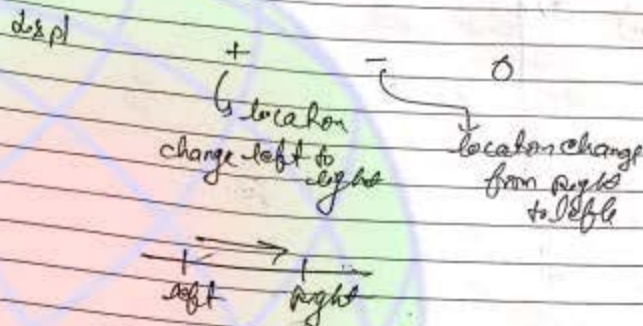 displ
+ - 0
↳ location
change left to
right
location change
from right
to left
left right